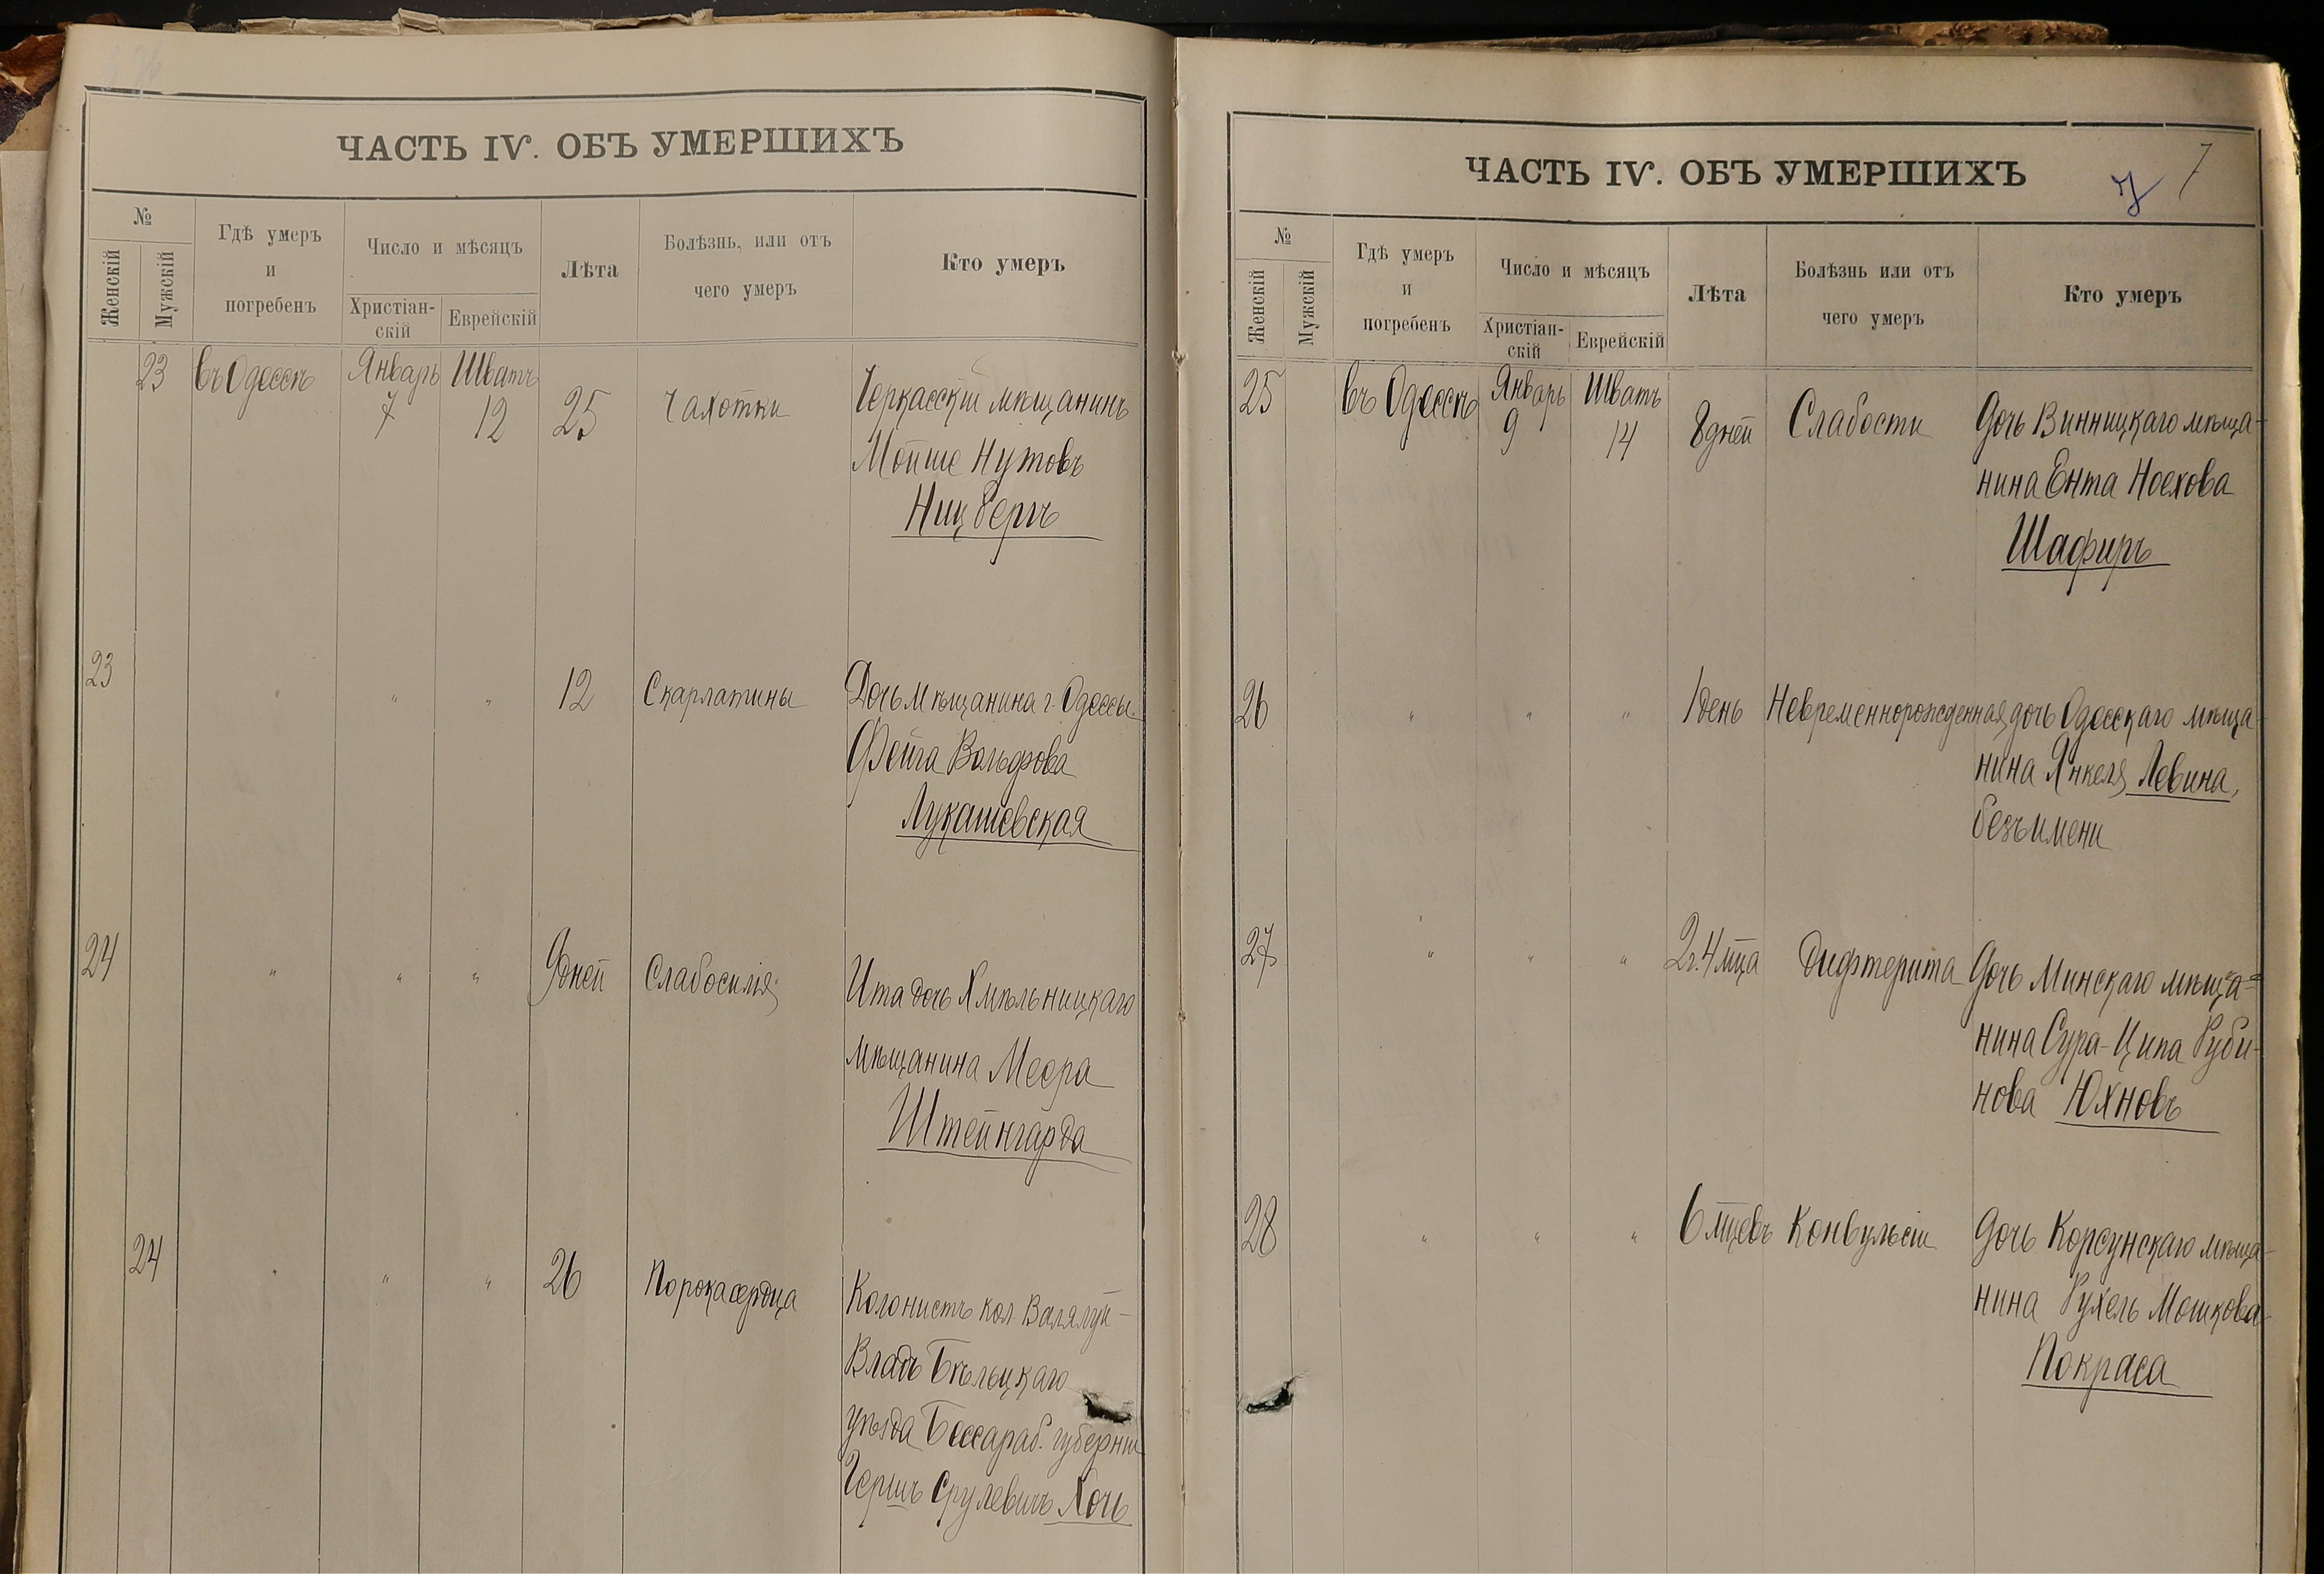 ЧАСТЬ IV. ОБЪ УМЕРШИХЪ
№
Женскій
Мужскій
Гдѣ умеръ
и
погребенъ
Число и мѣсяцъ
Христіан-
скій
Еврейскій
Лѣта
Болѣзнь, или отъ
чего умеръ
Кто умеръ
23 въ Одессѣ Январь 7 Шватъ 12 25 Чахотки Черкасскій мѣщанинъ
Мойше Нутовъ
Ницбергъ
23 " " " 12 Скарлатины Дочь мѣщанина г. Одессы
Фейга Вольфова
Лукашевская
24 " " " 9 дней Слабосилія Ита дочь Хмѣльницкаго
мѣщанина Меера
Штейнгарда
24 " " " 26 Порока сердца Колонистъ кол. Валялуй-
Владъ Бѣльцкаго
уѣзда Бессараб. губерніи
Гершъ Срулевичъ Хочь
ЧАСТЬ IV. ОБЪ УМЕРШИХЪ
7
7
№
Женскій
Мужскій
Гдѣ умеръ
и
погребенъ
Число и мѣсяцъ
Христіан-
скій
Еврейскій
Лѣта
Болѣзнь или отъ
чего умеръ
Кто умеръ
25 въ Одессѣ Январь 9 Шватъ 14 8 дней Слабости Дочь Винницкаго мѣща-
нина Ента Ноехова
Шафиръ
26 " " " 1 день Невременнорожденная дочь Одесскаго мѣща-
нина Янкеля Левина,
безъ имени
27 " " " 2 г. 4 мца Дифтерита Дочь Минскаго мѣща-
нина Сура-Ципа Руби-
нова Юхновъ
28 " " " 6 мцевъ Конвульсіи Дочь Корсунскаго мѣща-
нина Рухель Мошкова
Покраса